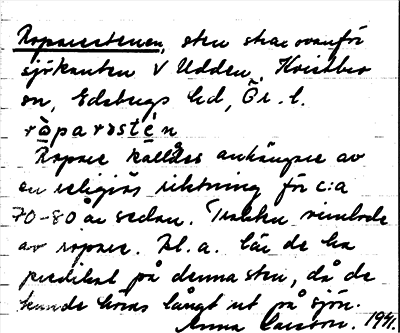 Roparestenen, sten strax ovanför
sjökanten V Udden, Kvistbro
sn, Edsbergs hd, Ör. l.
ròparəstén
Ropare kallades anhängare av
en religiös riktning för c:a
70-80 år sedan. Trakten vimlade
av ropare. Bl. a. lär de ha
predikat på denna sten, då de
kunde höras långt ut på sjön.
Anna Larsson. 1941.